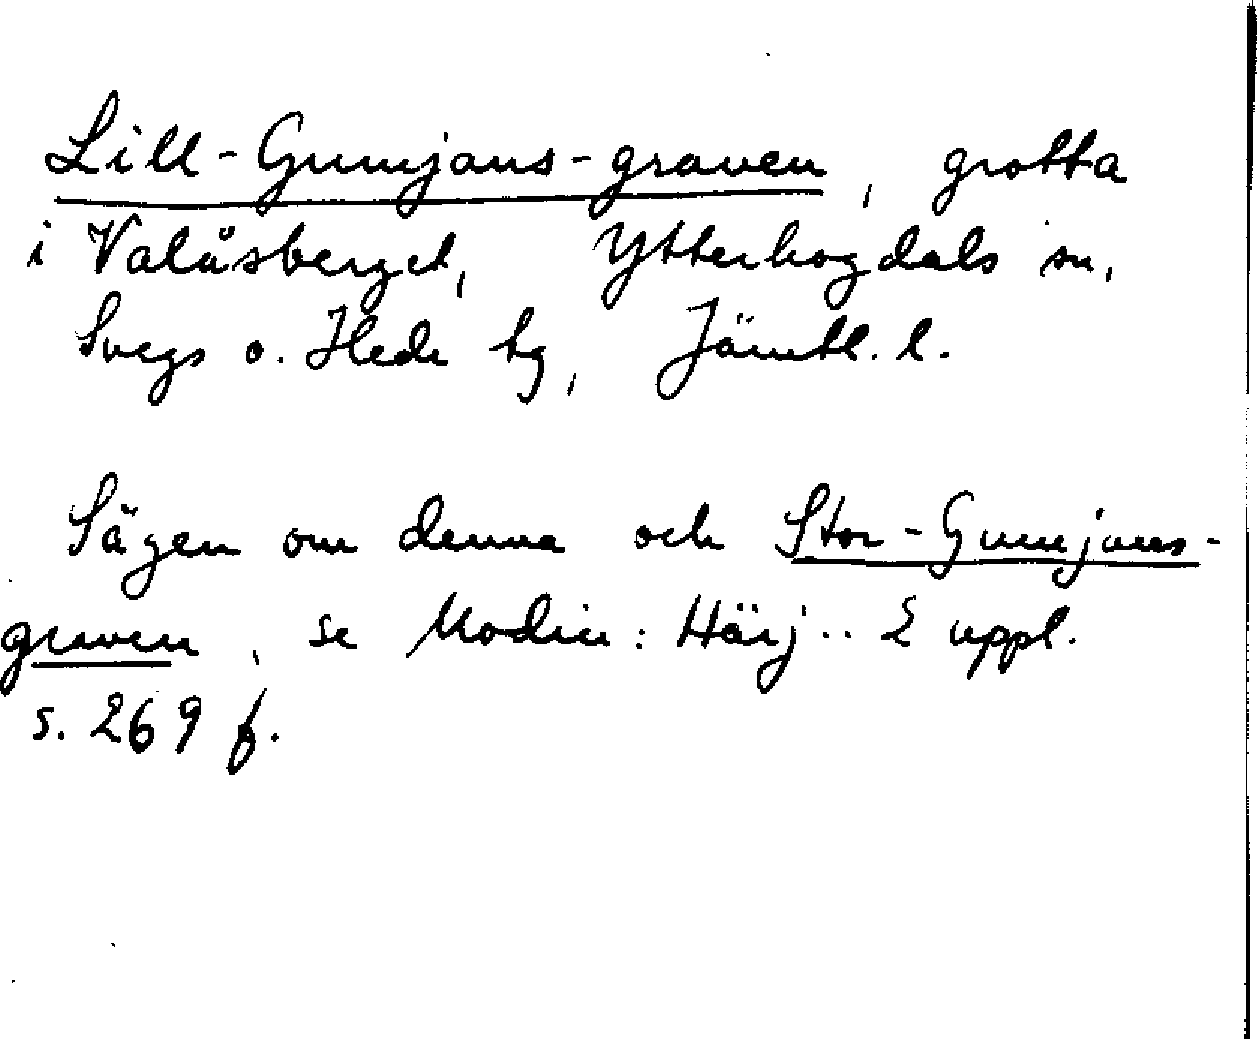 Lill-Gunnjans-graven, grotta
i Valåsberget, Ytterhogdals sn,
Svegs o. Hede tg, Jämtl. l.
Sägen om denna och Stor-Gunnjans-
graven, se Modin: Härj.. 2 uppl.
s. 269 f.